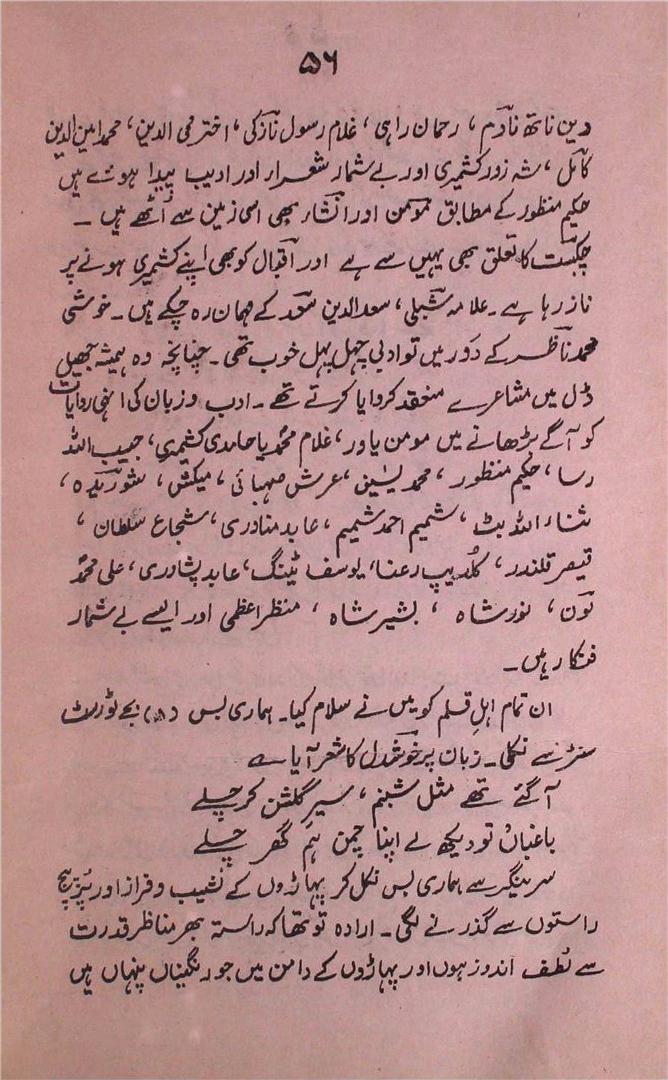 ۵۶
دین ناتھ نادم، رحمان راہی، غلام رسول نازکی، اختر محی الدین، محمد امین الدین
کامل، شہ زور کشمیری اور بے شمار شعرار اور ادیب پیدا ہوئے ہیں
حکیم منظور کے مطابق مومن اور انشار بھی اسی زمین سے اُٹھے ہیں ۔
چکبست کا تعلق بھی یہیں سے ہے اور اقبال کو بھی اپنے کشمیری ہونے پر
ناز رہا ہے۔ علامہ شبلی، سعد الدین سعد کے مہمان رہ چکے ہیں۔ خوشی
محمد ناظر کے دَور میں تو ادبی چہل پہل خوب تھی۔ چنانچہ وہ ہمیشہ جھیل
ڈل میں مشاعرے منعقد کروایا کرتے تھے ۔ ادب و زبان کی انہی روایات
کو آگے بڑھانے میں مومن یاور، غلام محمد یا حامدی کشمیری، حبیب اللہ
رسا، حکیم منظور، محمد یٰسین، عرش صہبائی، میکش، شوریدہ،
ثناء اللہ بٹ، شمیم احمد شمیم، عابد مناوری، شجاع سلطان،
قیصر قلندر، کلدیپ رعنا، یوسف ٹینگ، عابد پشاوری، علی محمد
لون، نور شاہ، بشیر شاہ، منظر اعظمی اور ایسے بے شمار
فنکار ہیں۔
ان تمام اہلِ قلم کو میں نے سلام کیا۔ ہماری بس بجے ٹورسٹ
سنٹر سے نکلی۔ زبان پر خوشدل کا شعر آیا ہے
آ گئے تھے مثل شبنم، سیر گلشن کر چلے
باغباں تو دیکھ لے اپنا چمن ہم گھر چلے
سرینگر سے ہماری بس نکل کر پہاڑوں کے نشیب و فراز اور پُر پیچ
راستوں سے گذرنے لگی۔ ارادہ تو تھا کہ راستہ بھر مناظر قدرت
سے لُطف اندوز ہوں اور پہاڑوں کے دامن میں جو رنگینیاں پنہاں ہیں